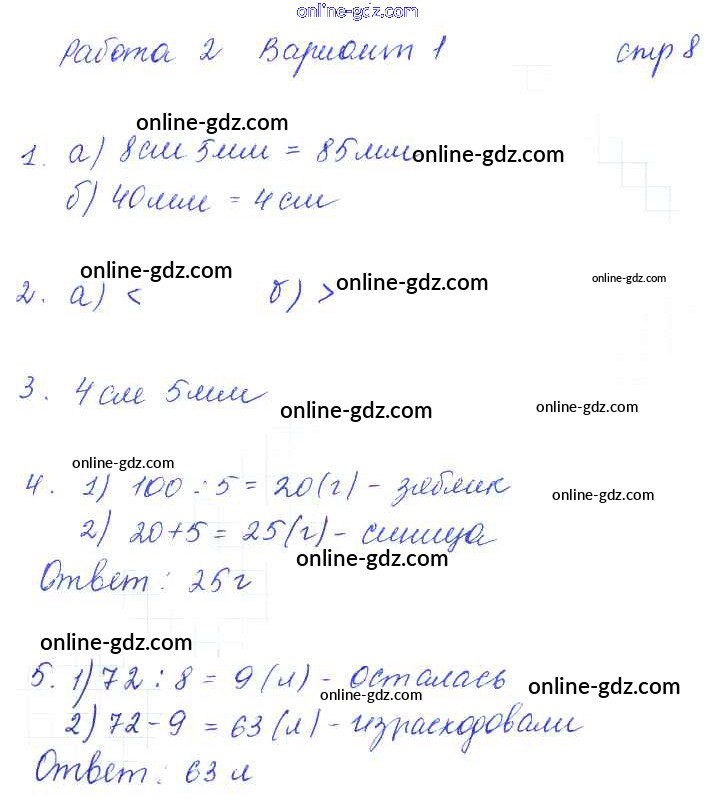 online-gdz.com
Работа 2 Вариант 1 стр 8
online-gdz.com
1. а) 8см 5мм = 85мм online-gdz.com
б) 40мм = 4см
online-gdz.com online-gdz.com online-gdz.com
2. а) < б) >
3. 4см 5мм
online-gdz.com online-gdz.com
online-gdz.com
4. 1) 100 : 5 = 20(г) - зяблик online-gdz.com
2) 20+5 = 25(г) - синица
online-gdz.com
Ответ: 25г
online-gdz.com
5. 1) 72 : 8 = 9(л) - осталась
online-gdz.com online-gdz.com
2) 72-9 = 63(л) - израсходовали
Ответ: 63л